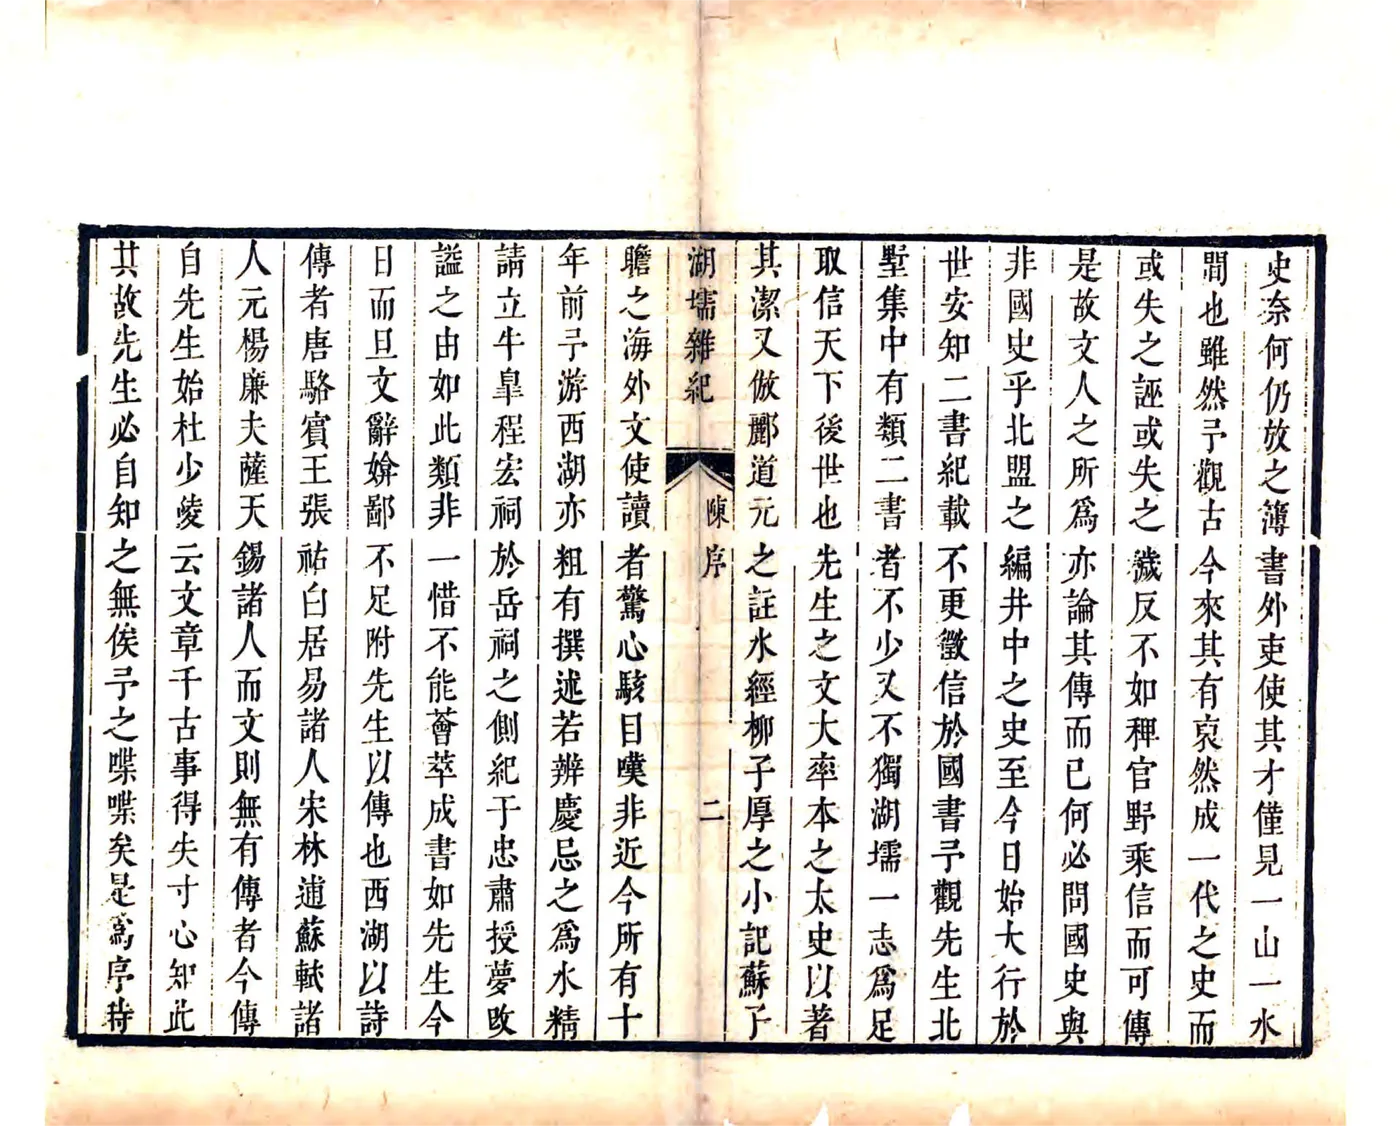 史奈何仍放之簿書外吏使其才僅見一山一水
間也雖然予觀古今來其有裒然成一代之史而
或失之誣或失之穢反不如稗官野乘信而可傳
是故文人之所爲亦論其傳而已何必問國史與
非國史乎北盟之編井中之史至今日始大行於
世安知二書紀載不更徵信於國書予觀先生北
墅集中有類二書者不少又不獨湖壖一志爲足
取信天下後世也先生之文大率本之太史以著
其潔又倣酈道元之註水經柳子厚之小記蘇子
湖壖雜紀
陳序
二
瞻之海外文使讀者驚心駭目嘆非近今所有十
年前予游西湖亦粗有撰述若辨慶忌之爲水精
請立牛臯程宏祠於岳祠之側紀于忠肅授夢改
謚之由如此類非一惜不能薈萃成書如先生今
日而旦文辭媕鄙不足附先生以傳也西湖以詩
傳者唐駱賓王張祐白居易諸人宋林逋蘇軾諸
人元楊廉夫薩天錫諸人而文則無有傳者今傳
自先生始杜少陵云文章千古事得失寸心知此
其故先生必自知之無俟予之喋喋矣是爲序時